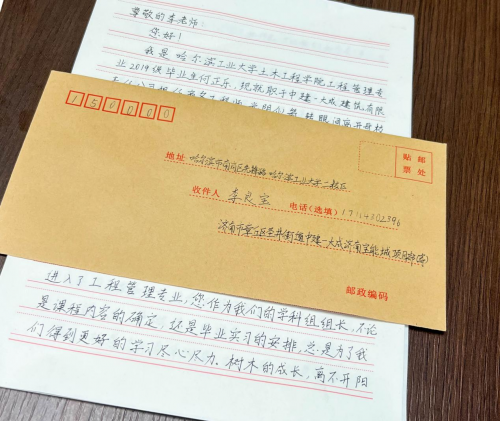 尊敬的李老师:
您好!
我是哈尔滨工业大学土木工程学院工程管理专
业2019级毕业生何正乐,现就职于中建一大成建筑有限
150000
贴 邮
票 处
地址 哈尔滨市南岗区 哈尔滨工业大学二校区
收件人 李良宝 电话(选填)
济南市章丘区圣井街道中建一大成济南宝能城项目部
邮政编码
进入了工程管理专业,您作为我们的学科组组长,不论
是课程内容的确定,还是毕业实习的安排,总是为了我
们得到更好的学习尽心尽力。树木的成长,离不开阳